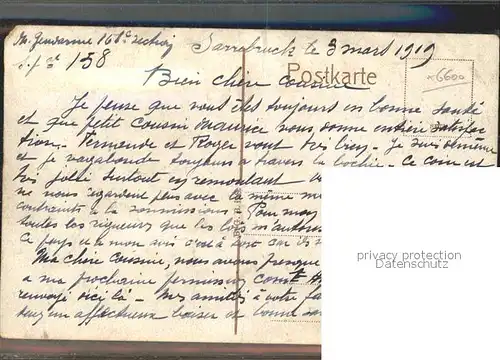 M. Gendarme 161e section
s.p. nº 158
Sarrebruck le 3 mars 1919
Postkarte
6600
Bien chère cousine
Je pense que vous êtes toujours en bonne santé
et que petit cousin Maurice vous donne entière satisfac
tion. Fernande et Roger vont très bien. Je suis
et je vagabonde toujours à travers la bochie. Ce coin est
très joli surtout en remontant
ne nous regardent plus avec la même
contraints à la soumission. Pour moy
toutes les rigueurs que les lois m'autoris
Ce pays est à mon avis
Ma chère cousine, nous avons presque
a ma prochaine permission
renvoyé d'ici là. Mes amitiés à votre
un affectueux baiser de
privacy protection
Datenschutz